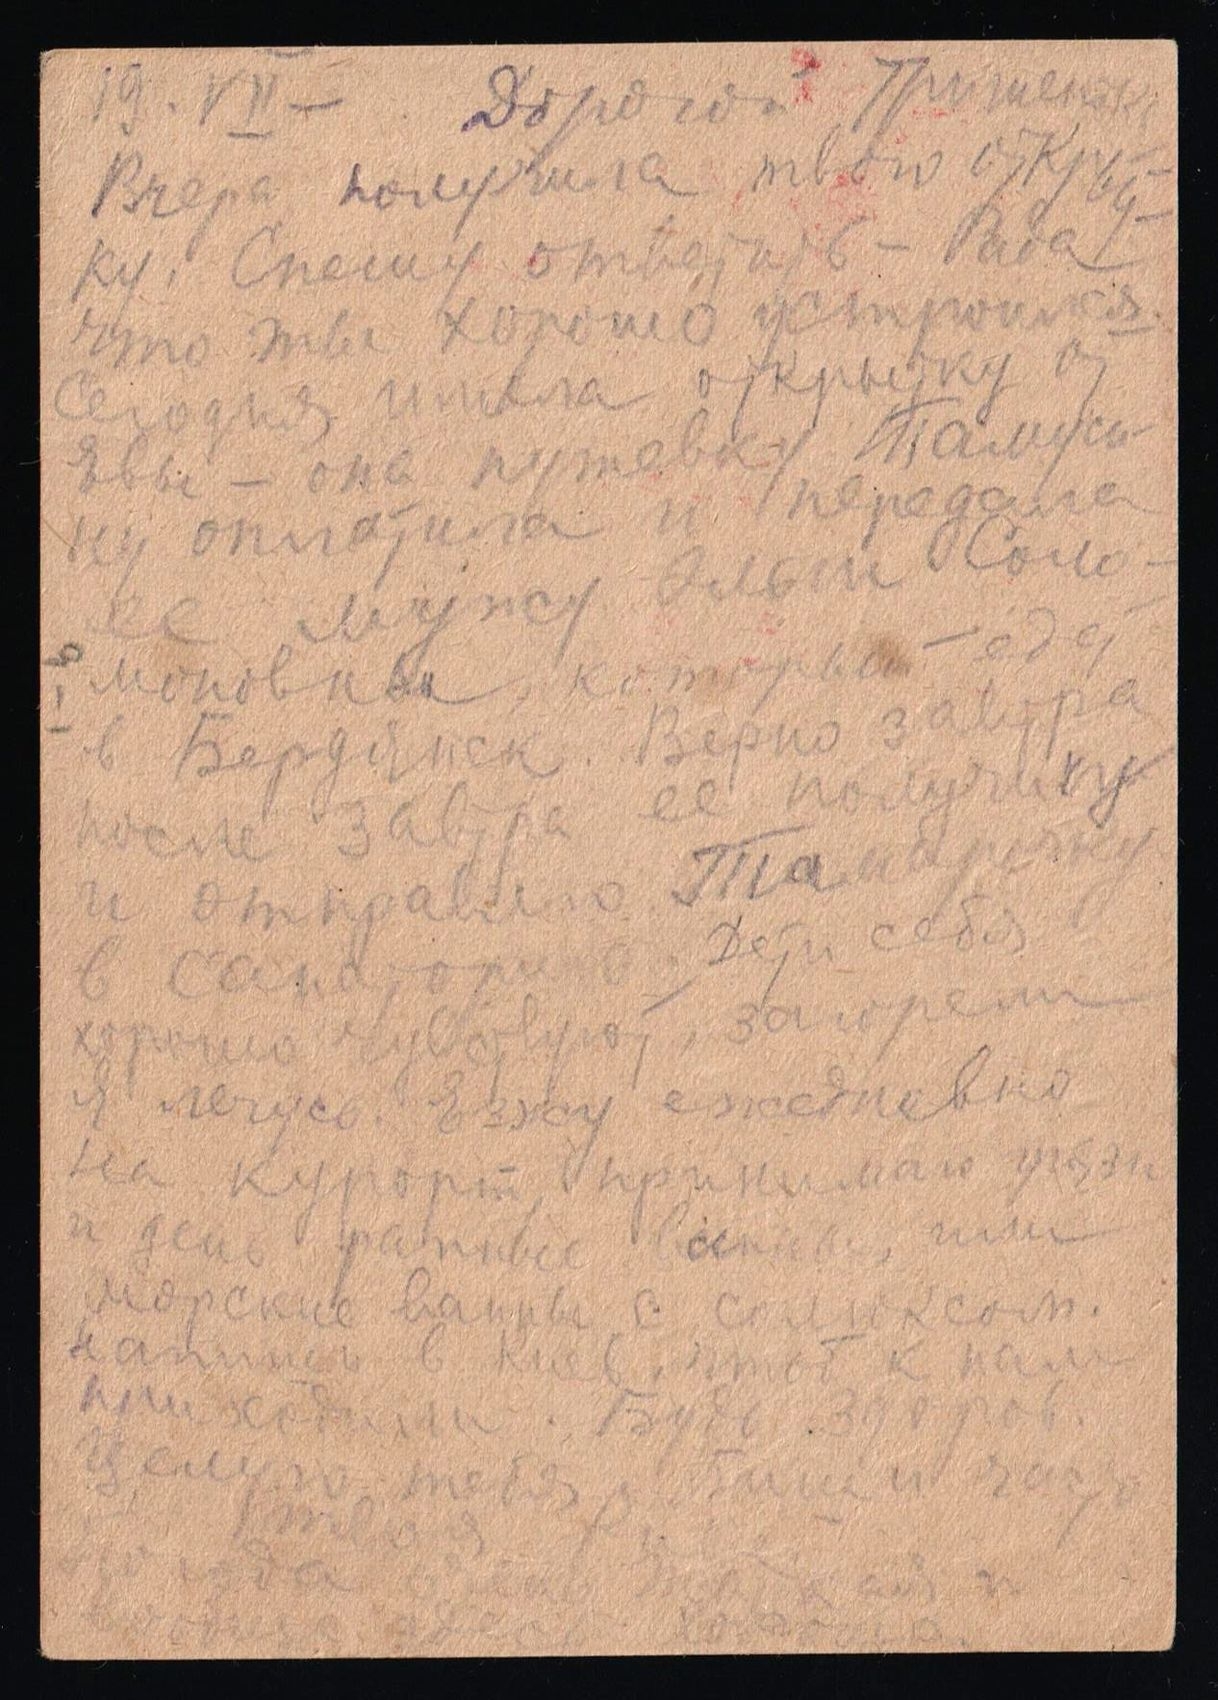 19. VII – Дорогой Гришенька
Вчера получила твою открыт-
ку. Спешу ответить – Рада
что ты хорошо устроился.
Сегодня имела открытку от
Евы – она путевку Тамусь-
ку оплатила и передала
ее мужу Ольги Соло-
моновны, который едет
в Бердянск. Верно завтра
после завтра ее получу
и отправлю Тамарочку
в санаторию. Дети себя
хорошо чувствуют, загорели
Я лечусь. Езжу ежедневно
на курорт, принимаю грязи
и день разные ванны, или
морские ванны с солюксом.
Напиши в Киев, чтоб к нам
приходили. Будь здоров.
Целую тебя. Пиши часто
твоя
погода очень и
здесь хороша.